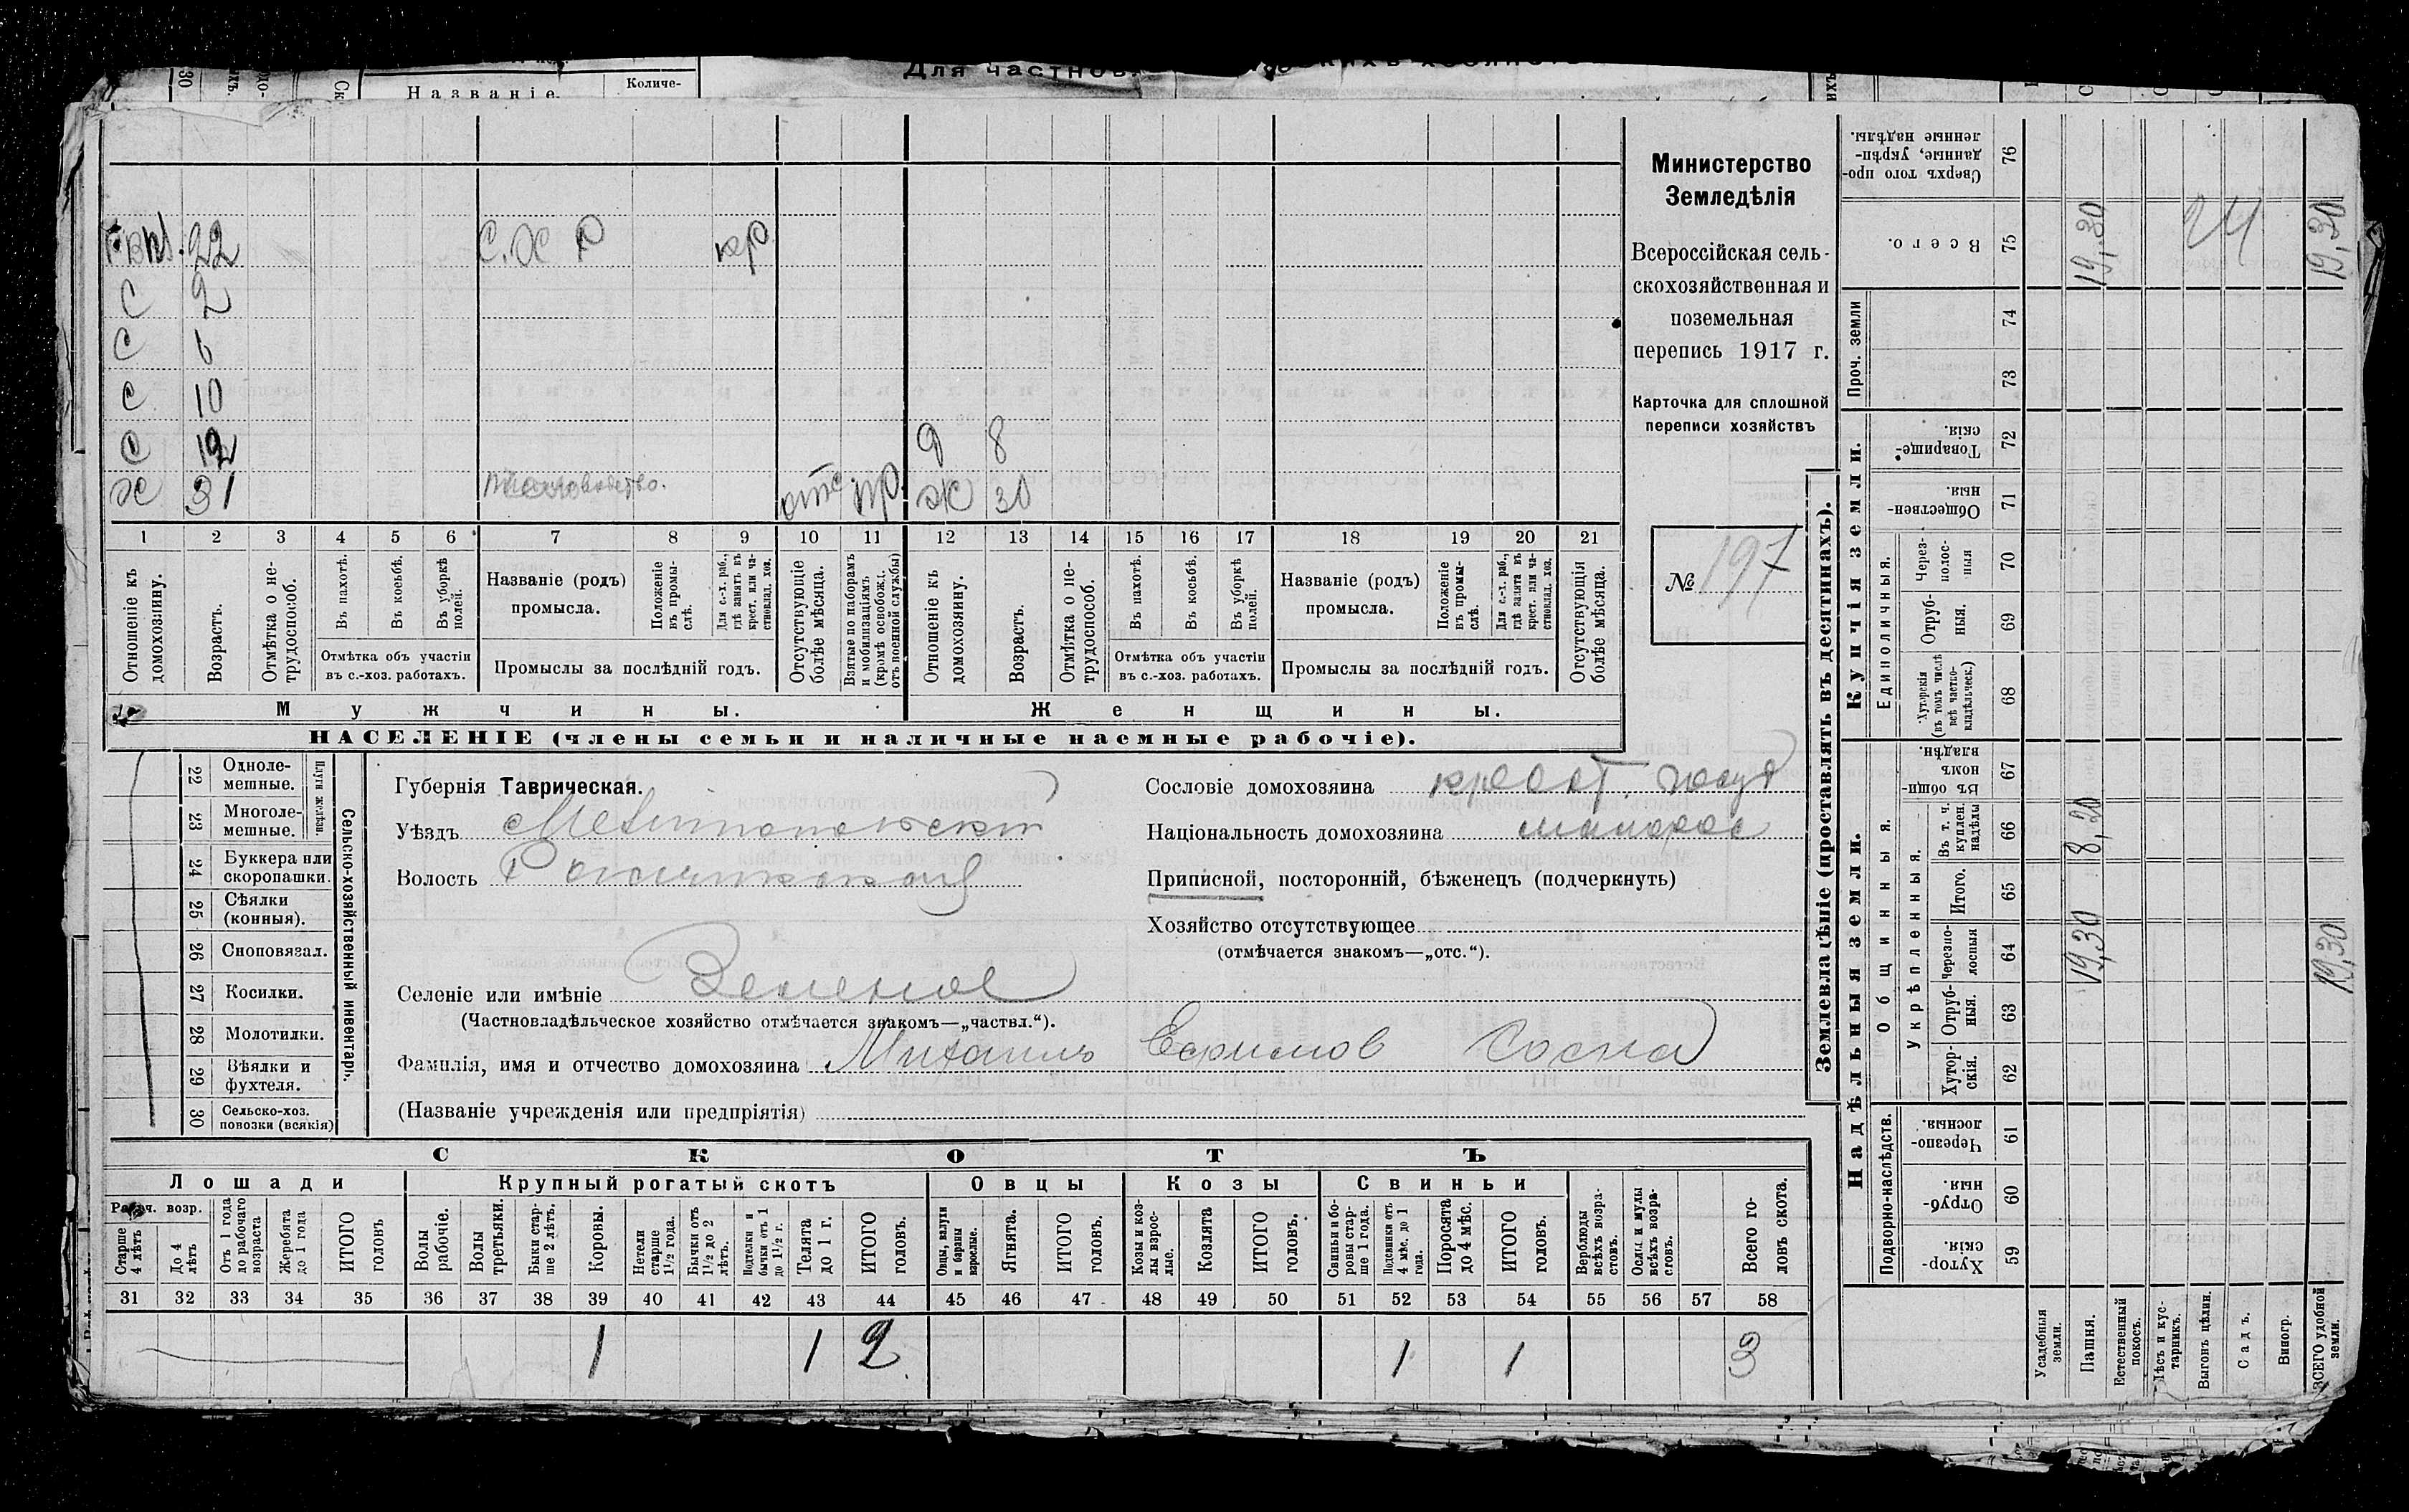 Для частнов
Названіе.
Количе-
Министерство
Земледѣлія
Всероссійская сель-
скохозяйственная и
поземельная
перепись 1917 г.
Карточка для сплошной
переписи хозяйствъ
№ 197
22 С.Х Р кр
С 2
С 6
С 10
С 12 Д 8
Х 31 отс. пр. Ж 30
1 2 3 4 5 6 7 8 9 10 11 12 13 14 15 16 17 18 19 20 21
Отношеніе къ домохозяину.
Возрастъ.
Отмѣтка о не-трудоспособ.
Въ пахотѣ.
Въ косьбѣ.
Въ уборкѣ полей.
Отмѣтка объ участіи
въ с.-хоз. работахъ.
Названіе (родъ)
промысла.
Положеніе въ промы-слѣ.
Для с.-х. раб., гдѣ занятъ въ крест. или ча-стновлад. хоз.
Промыслы за послѣдній годъ.
Отсутствующіе болѣе мѣсяца.
Взятые по наборамъ и мобилизаціямъ (кромѣ освобожд. отъ военной службы)
Отношеніе къ домохозяину.
Возрастъ.
Отмѣтка о не-трудоспособ.
Въ пахотѣ.
Въ косьбѣ.
Въ уборкѣ полей.
Отмѣтка объ участіи
въ с.-хоз. работахъ.
Названіе (родъ)
промысла.
Положеніе въ промы-слѣ.
Для с.-х. раб., гдѣ занята въ крест. или ча-стновлад. хоз.
Промыслы за послѣдній годъ.
Отсутствующія болѣе мѣсяца.
Мужчины.
Женщины.
НАСЕЛЕНІЕ (члены семьи и наличные наемные рабочіе).
22 Одноле-мешные.
23 Многоле-мешные.
24 Буккера или скоропашки.
25 Сѣялки (конныя).
26 Сноповязал.
27 Косилки.
28 Молотилки.
29 Вѣялки и фухтеля.
30 Сельско-хоз. повозки (всякія)
Сельско-хозяйственный инвентарь.
Губернія Таврическая.
Уѣздъ Мелитопольскій
Волость
Селеніе или имѣніе Зеленое
(Частновладѣльческое хозяйство отмѣчается знакомъ—„частвл.“).
Фамилія, имя и отчество домохозяина Михаилъ Ефимов Сосна
(Названіе учрежденія или предпріятія)
Сословіе домохозяина крест.
Національность домохозяина малорос
Приписной, посторонній, бѣженецъ (подчеркнуть)
Хозяйство отсутствующее
(отмѣчается знакомъ—„отс.“).
СКОТЪ
Лошади
Крупный рогатый скотъ
Овцы
Козы
Свиньи
Рабоч. возр.
Старше 4 лѣтъ
До 4 лѣтъ
Отъ 1 года до рабочаго возраста
Жеребята до 1 года
ИТОГО головъ
Волы рабочіе.
Волы третьяки.
Быки стар-ше 2 лѣтъ.
Коровы.
Нетели старше 1½ года.
Бычки отъ 1½ до 2 лѣтъ.
Подтелки и бычки отъ 1 до 1½ г.
Телята до 1 г.
ИТОГО головъ.
Овцы, валухи и бараны взрослые.
Ягнята.
ИТОГО головъ.
Козы и коз-лы взрос-лые.
Козлята
ИТОГО головъ.
Свиньи и бо-ровы стар-ше 1 года.
Подсвинки отъ 4 мѣс. до 1 года.
Поросята до 4 мѣс.
ИТОГО головъ.
Верблюды всѣхъ возра-стовъ.
Ослы и мулы всѣхъ возра-стовъ.
Всего го-ловъ скота.
31 32 33 34 35 36 37 38 39 40 41 42 43 44 45 46 47 48 49 50 51 52 53 54 55 56 57 58
1 1 2 1 1 3
Землевладѣніе (проставлять въ десятинахъ).
Надѣльныя земли.
Купчія земли.
Проч. земли
Подворно-наслѣдств.
Общинныя.
Укрѣпленныя.
Единоличныя.
Сверхъ того про-данные, укрѣп-ленные надѣлы. 76
Всего. 75
74
73
Товарище-скія. 72
Обществен-ныя. 71
Через-полос-ныя 70
Отруб-ныя. 69
Хуторскія (въ томъ числѣ всѣ частно-владѣльческ.) 68
Въ общин-номъ владѣн. 67
Въ т. ч. куплен. надѣлы 66
Итого. 65
Черезпо-лосныя 64
Отруб-ныя. 63
Хутор-скія. 62
Черезпо-лосныя. 61
Отруб-ныя. 60
Хутор-скія. 59
Усадебныя земли.
Пашня.
Естественный покосъ.
Лѣсъ и кус-тарникъ.
Выгонъ цѣлин.
Садъ.
Виногр.
ВСЕГО удобной земли.
19,30
24
19,30
8,20
19,30
19,30